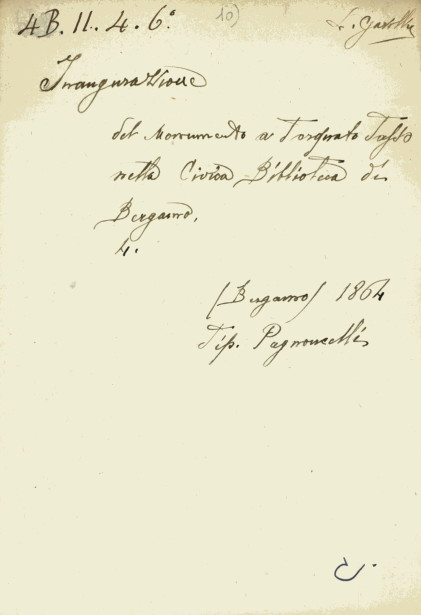 4B. II. 4. 6.°
10)
Inaugurazione
del Monumento a Torquato Tasso
nella Civica Biblioteca di
Bergamo,
4.
(Bergamo) 1864
Tip. Pagnoncelli